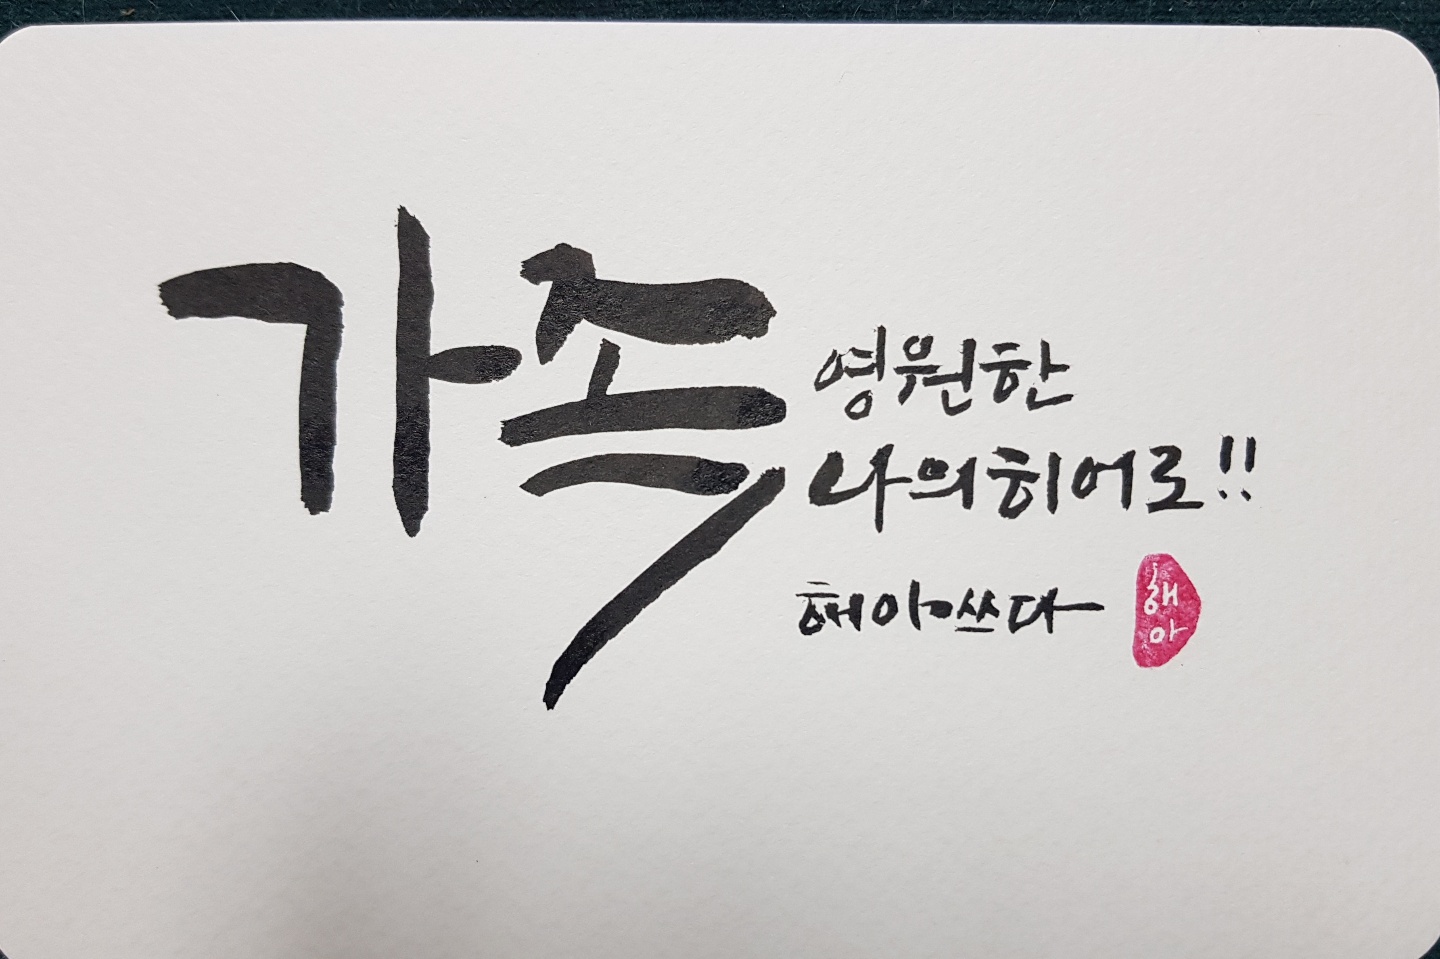 가족
영원한
나의히어로!!
해아쓰다
해
아